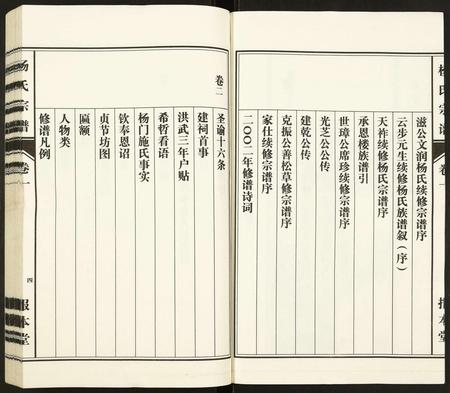 杨氏宗谱
卷一
报本堂
滋公文润杨氏续修宗谱序
云步元生续修杨氏族谱叙(序)
天祚续修杨氏宗谱序
承恩楼族谱引
世璋公席珍续修宗谱序
光芝公公传
建乾公传
克振公善松草修宗谱序
家仕续修宗谱序
二〇〇二年修谱诗词
卷二
圣谕十六条
建祠首事
洪武三年户贴
希哲看语
杨门施氏事实
钦奉恩诏
贞节坊图
匾额
人物类
修谱凡例
杨氏宗谱
卷一
四
报本堂